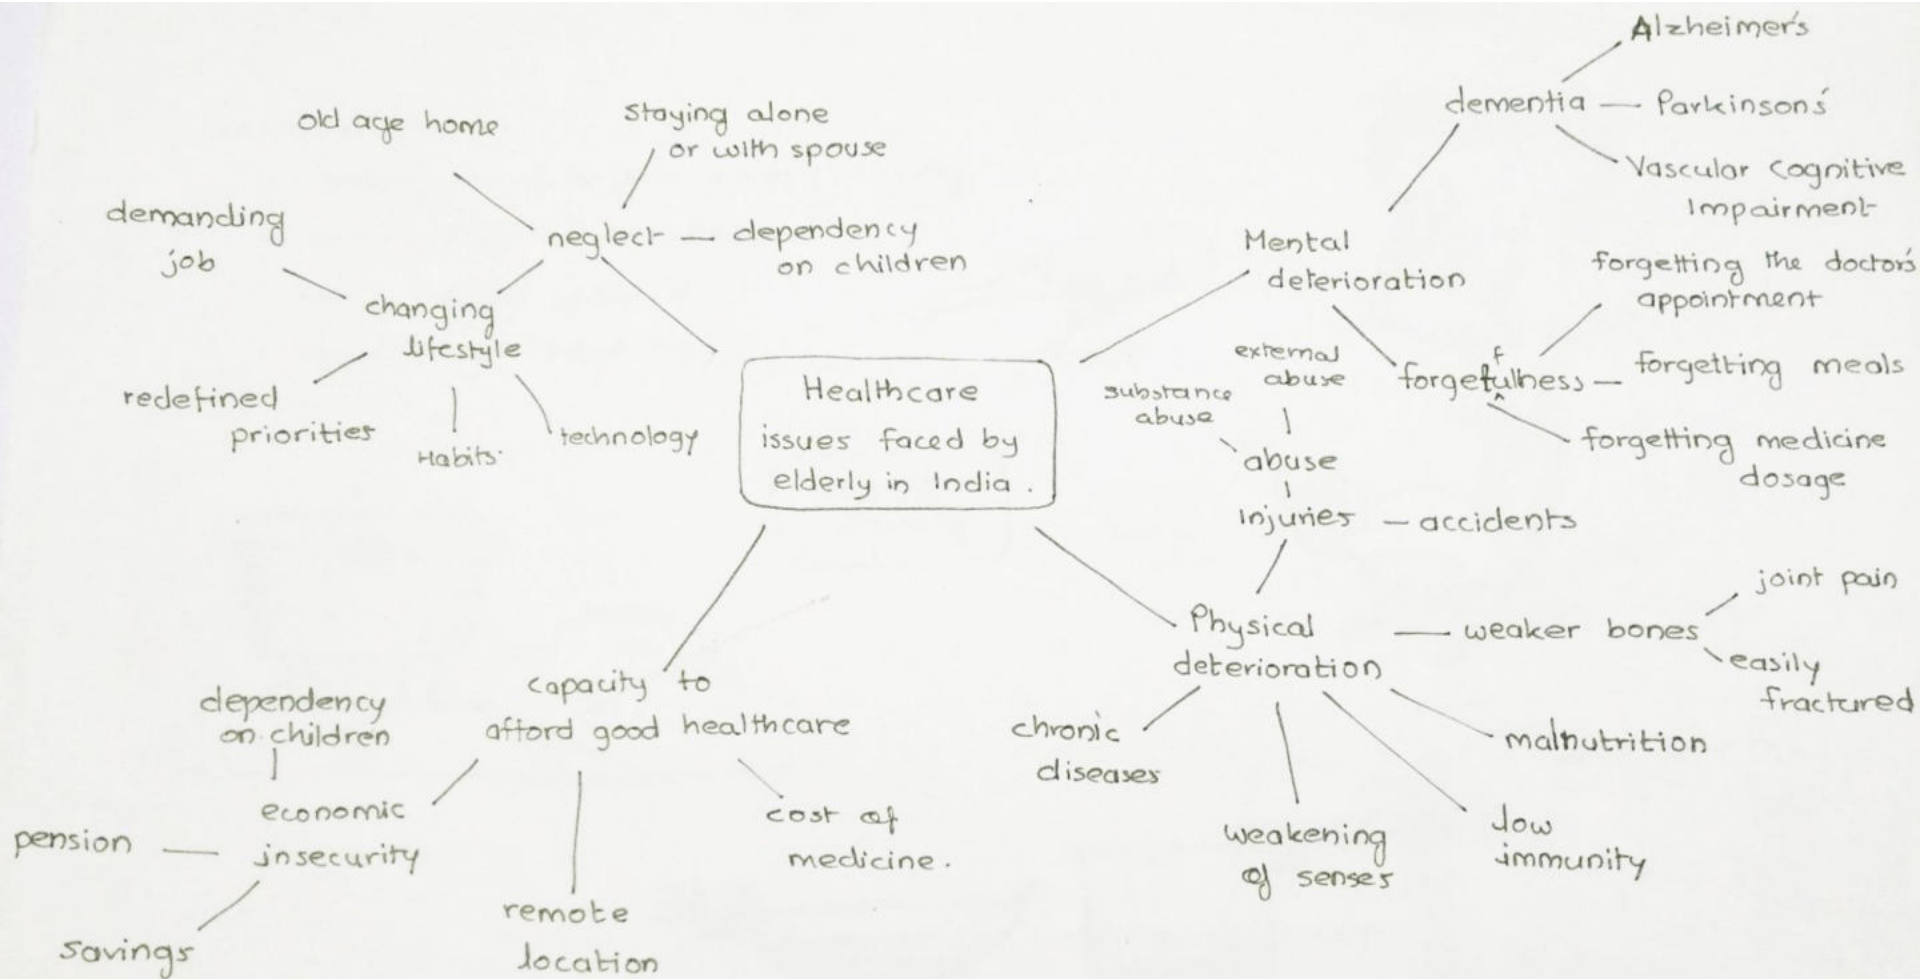 Healthcare
issues faced by
elderly in India.
neglect
old age home
staying alone
or with spouse
dependency
on children
changing
lifestyle
demanding
job
redefined
priorities
Habits
technology
Mental
deterioration
dementia
Alzheimer's
Parkinsons'
Vascular Cognitive
Impairment
forgetfulness
forgetting the doctor's
appointment
forgetting meals
forgetting medicine
dosage
Physical
deterioration
injuries
accidents
abuse
external
abuse
substance
abuse
weaker bones
joint pain
easily
fractured
malnutrition
low
immunity
weakening
of senses
chronic
diseases
capacity to
afford good healthcare
cost of
medicine.
remote
location
economic
insecurity
dependency
on children
pension
savings